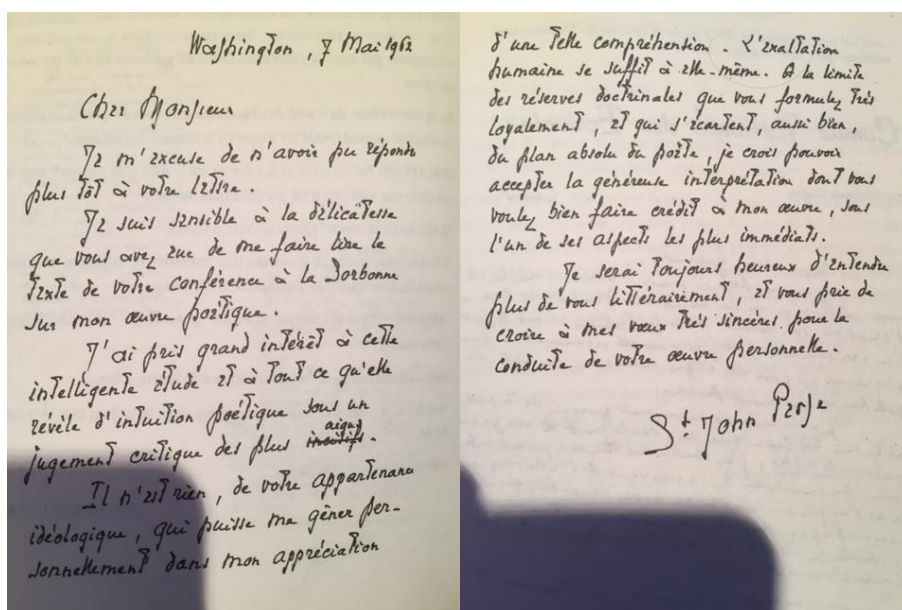 Washington, 7 Mai 1962
Cher Monsieur
Je m'excuse de n'avoir pu répondre
plus tôt à votre lettre.
Je suis sensible à la délicatesse
que vous avez eue de me faire lire le
texte de votre conférence à la Sorbonne
sur mon œuvre poétique.
J'ai pris grand intérêt à cette
intelligente étude et à tout ce qu'elle
révèle d'intuition poétique sous un
jugement critique des plus incisifs aigus.
Il n'est rien, de votre appartenance
idéologique, qui puisse me gêner per-
sonnellement dans mon appréciation
d'une telle compréhension. L'exaltation
humaine se suffit à elle-même. A la limite
des réserves doctrinales que vous formulez très
loyalement, et qui s'écartent, aussi bien,
du plan absolu du poète, je crois pouvoir
accepter la généreuse interprétation dont vous
voulez bien faire crédit à mon œuvre, sous
l'un de ses aspects les plus immédiats.
Je serai toujours heureux d'entendre
plus de vous littérairement, et vous prie de
croire à mes vœux très sincères pour la
conduite de votre œuvre personnelle.
St John Perse